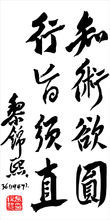 知術欲圓
行旨須直
黎錦熙